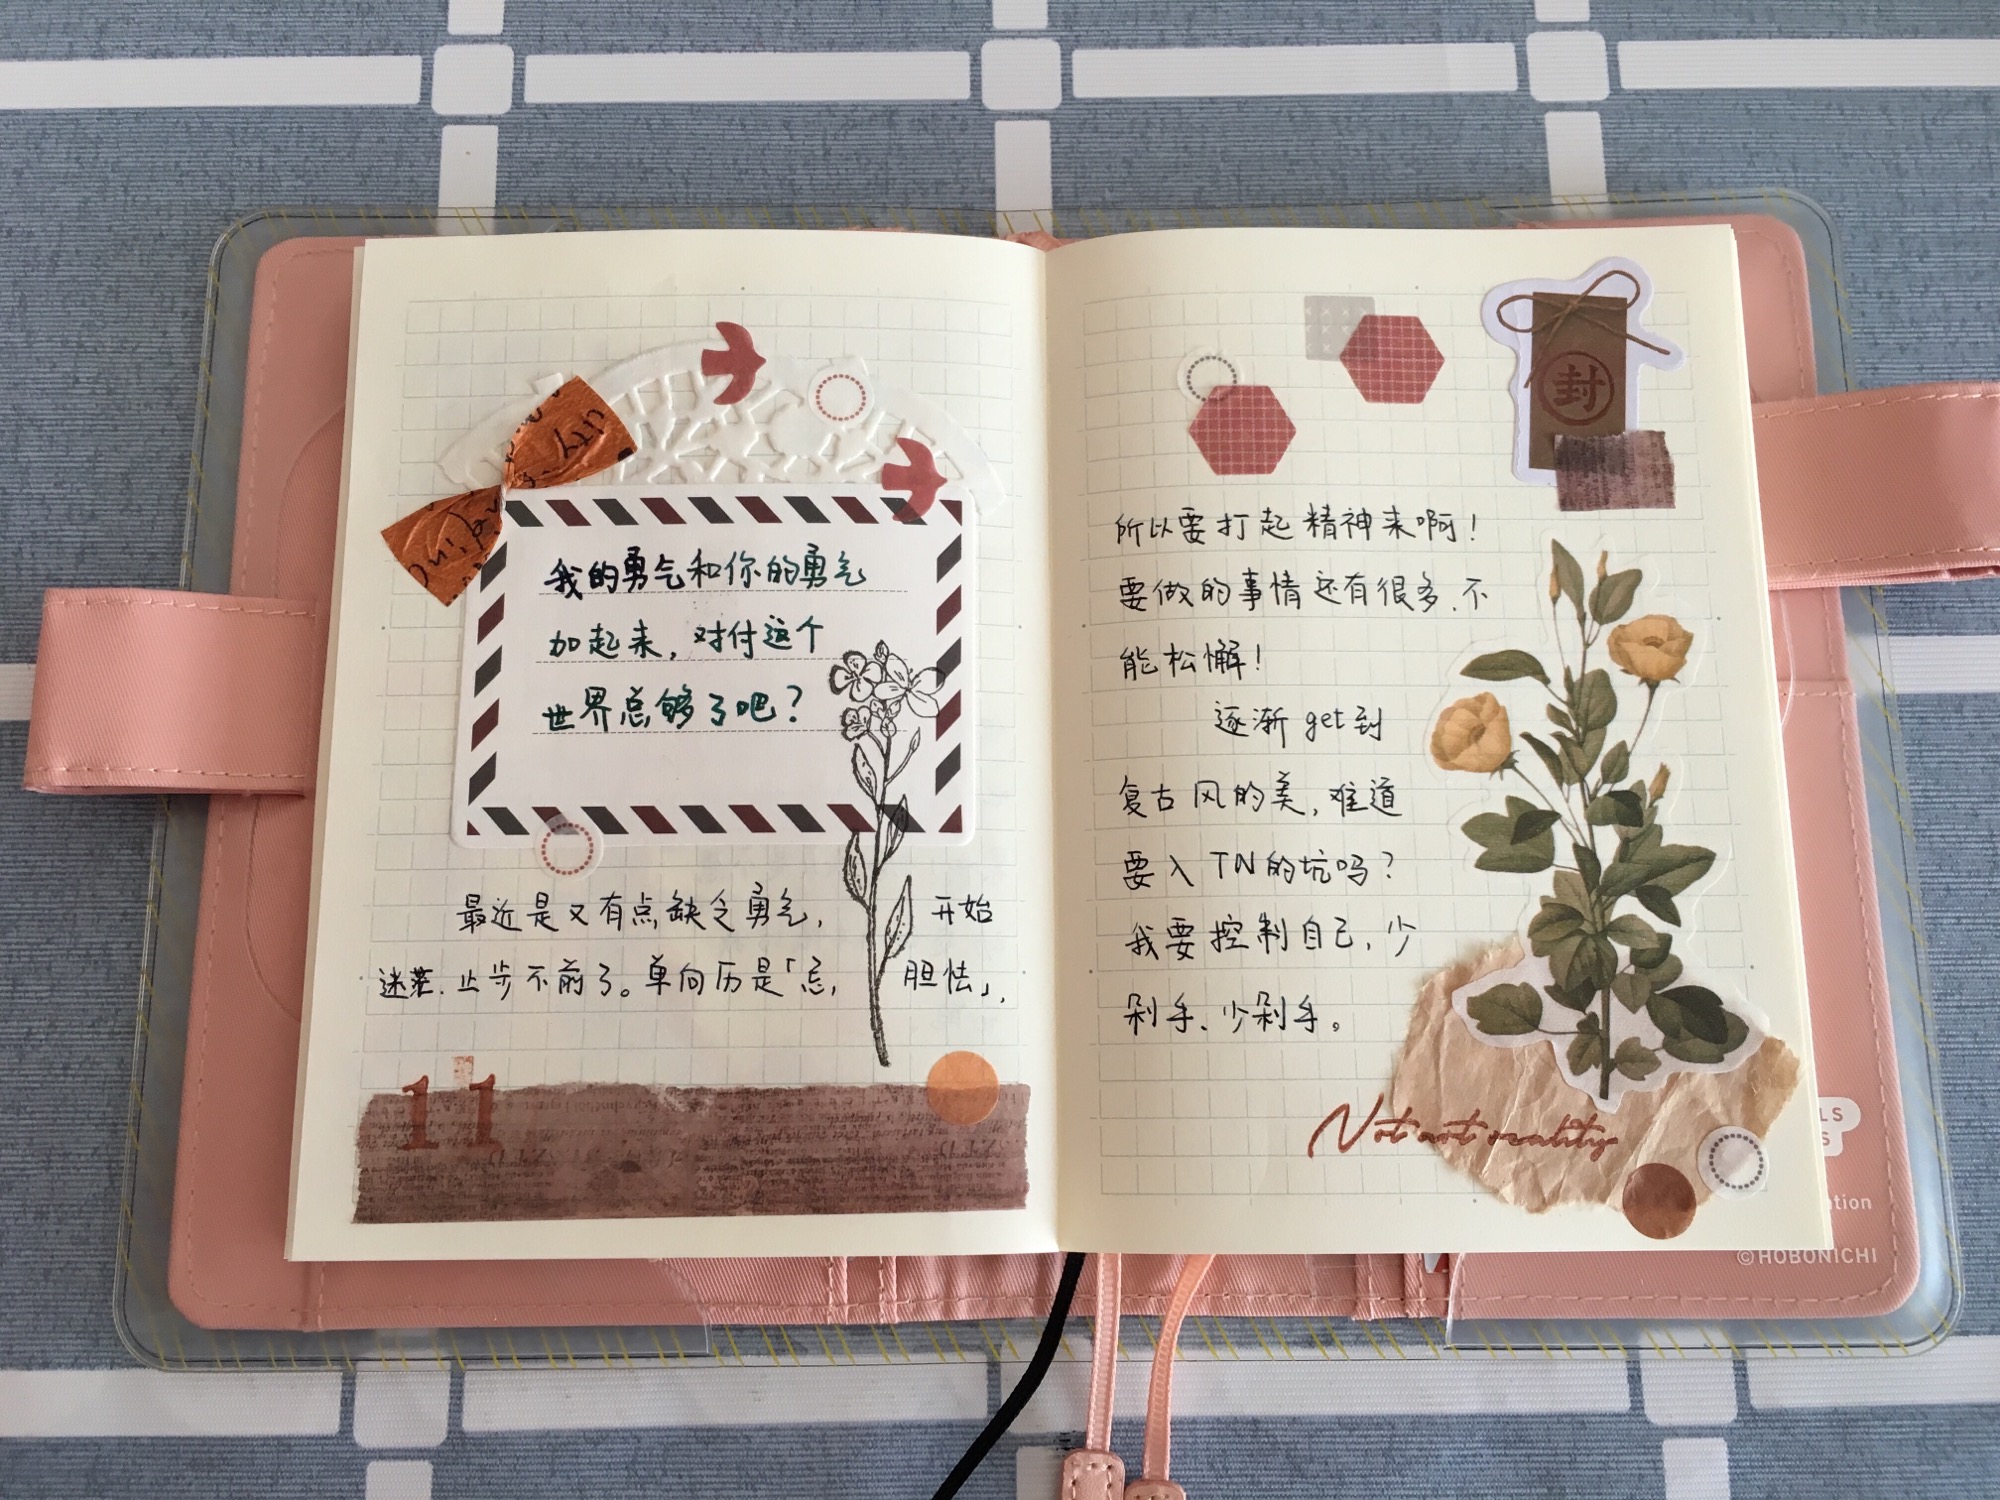 我的勇气和你的勇气
加起来，对付这个
世界总够了吧？
最近是又有点缺乏勇气，开始
迷茫、止步不前了。单向历是「忌，胆怯」，
11
封
所以要打起精神来啊！
要做的事情还有很多、不
能松懈！
逐渐get到
复古风的美，难道
要入TN的坑吗？
我要控制自己，少
剁手、少剁手。
Not art reality
©HOBONICHI